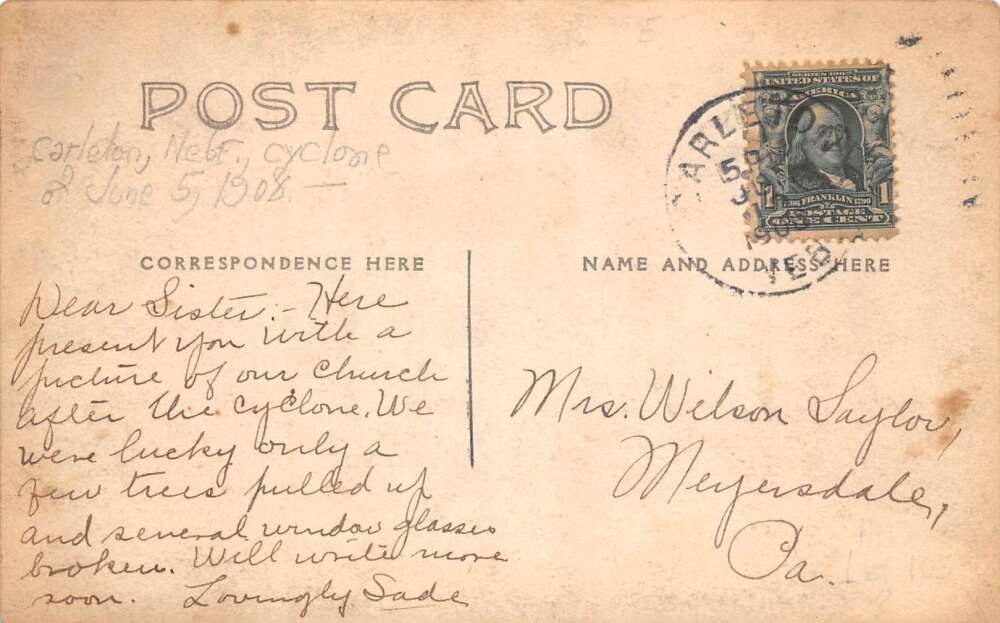 POST CARD
Carleton, Nebr., cyclone
of June 5, 1908. —
SERIES 1902
UNITED STATES OF
AMERICA
1706 FRANKLIN 1790
1 1
POSTAGE
ONE CENT
CARLETO
5 P
JU
1908
NEB
CORRESPONDENCE HERE
NAME AND ADDRESS HERE
Dear Sister:- Here
present you with a
picture of our church
after the cyclone. We
were lucky only a
few trees pulled up
and several window glasses
broken. Will write more
soon. Lovingly Sade
Mrs. Wilson Saylor,
Meyersdale,
Pa.